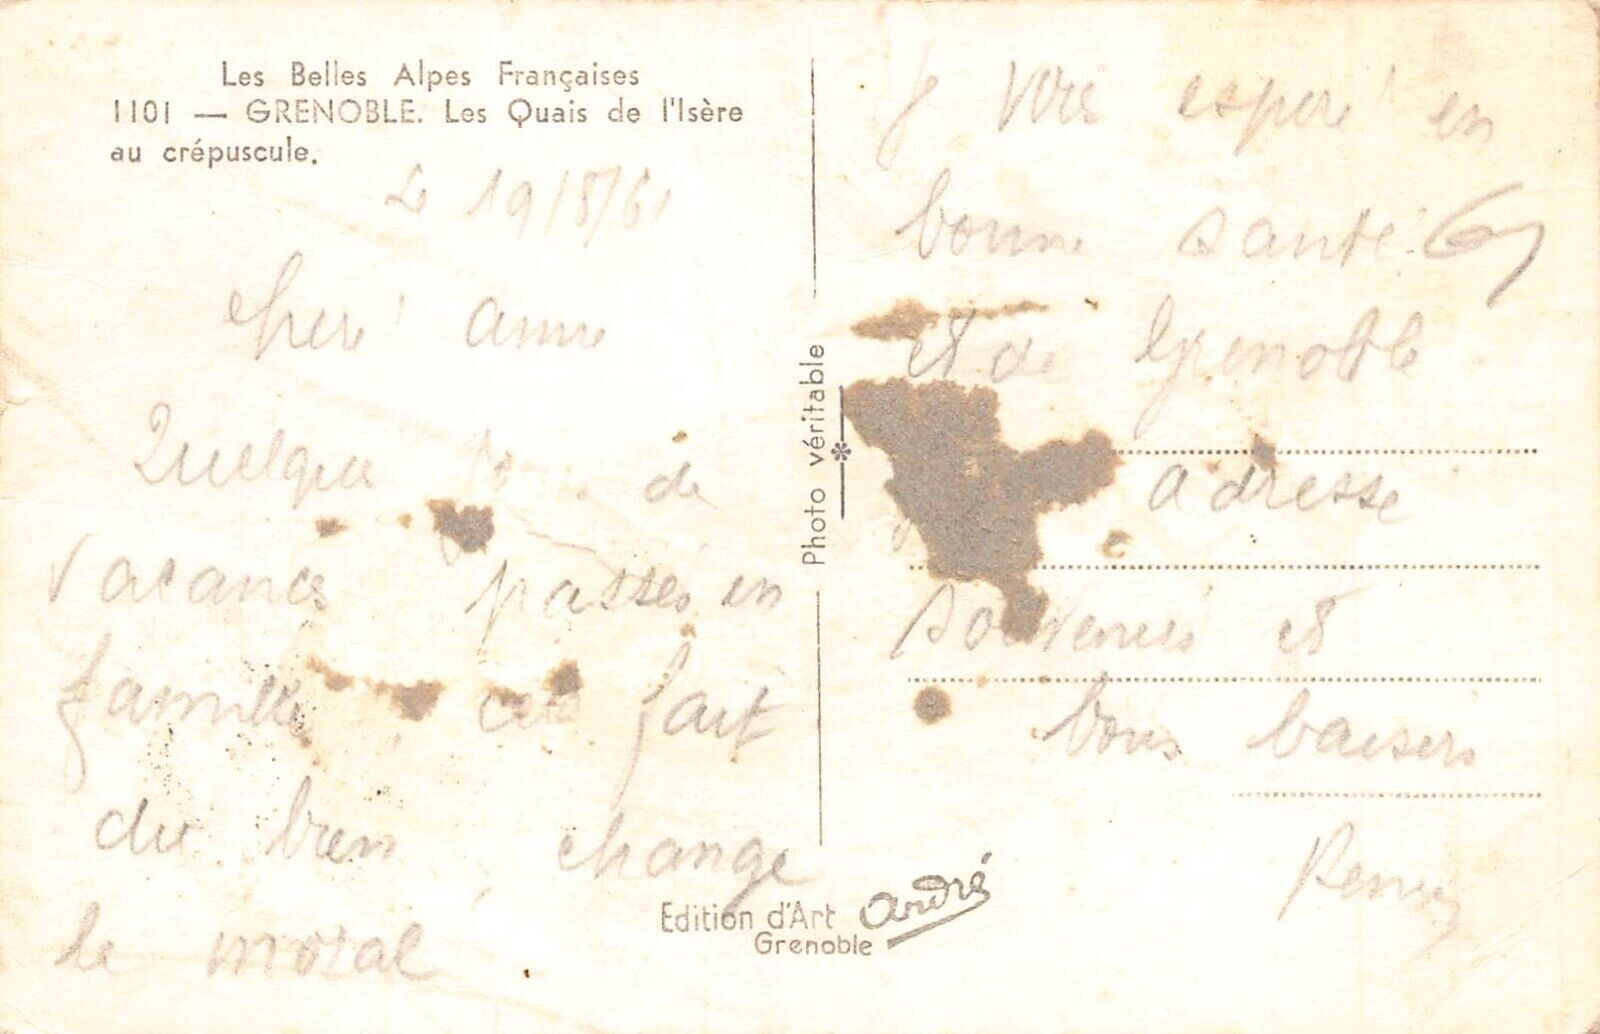 Les Belles Alpes Françaises
1101 — GRENOBLE. Les Quais de l'Isère
au crépuscule.
Le 19/8/61
cher amie
Quelques de
vacances passés en
famille, cela fait
du bien change
le moral
Photo véritable
Edition d'Art André
Grenoble
Je vous esperé en
bonne santé.
et de Grenoble
adresse
souvenirs et
bons baisers